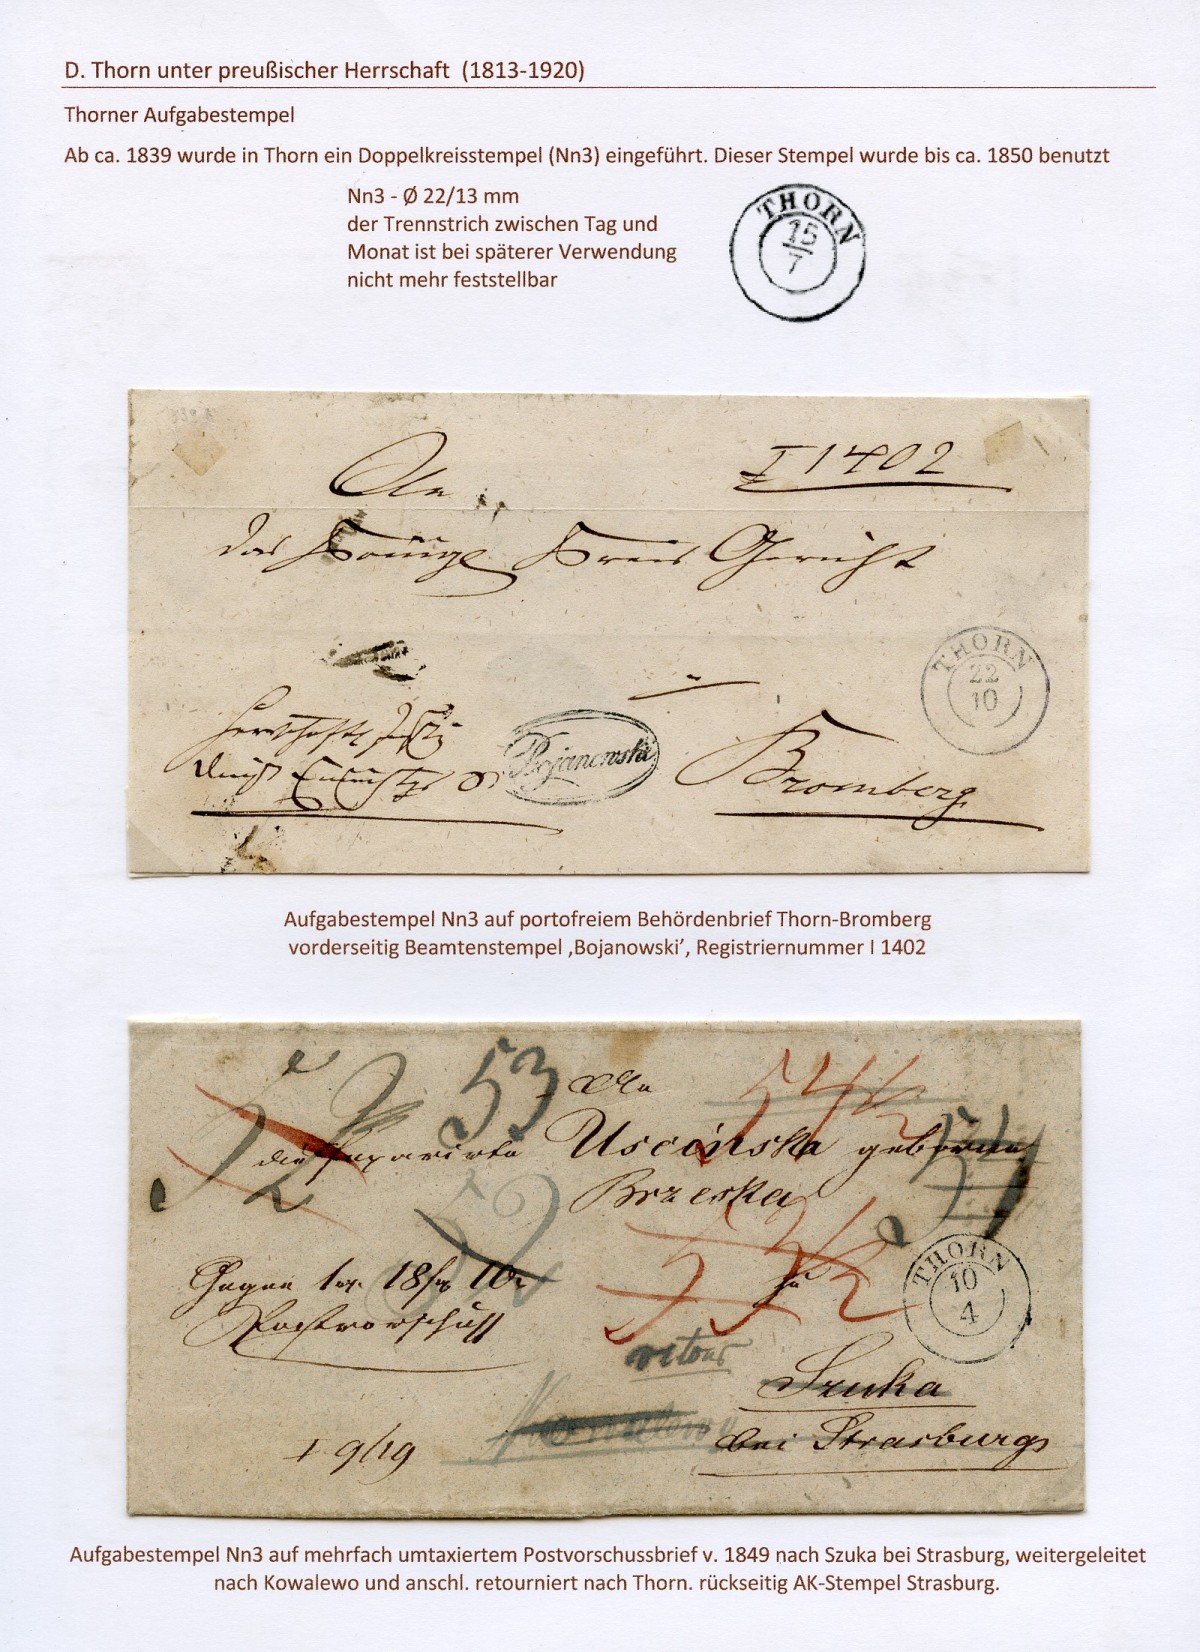 D. Thorn unter preußischer Herrschaft (1813-1920)
Thorner Aufgabestempel
Ab ca. 1839 wurde in Thorn ein Doppelkreisstempel (Nn3) eingeführt. Dieser Stempel wurde bis ca. 1850 benutzt
Nn3 - Ø 22/13 mm
der Trennstrich zwischen Tag und
Monat ist bei späterer Verwendung
nicht mehr feststellbar
THORN
15
7
An
I 1402
das Königl Kreis Gericht
THORN
22
10
Bojanowski
Bromberg
Aufgabestempel Nn3 auf portofreiem Behördenbrief Thorn-Bromberg
vorderseitig Beamtenstempel ‚Bojanowski’, Registriernummer I 1402
53
An
54
die separirte Uscinska geborene
Brzeska
52
THORN
10
4
Gegen 18 10
Postvorschuss
zu
retour
Szuka
bei Strasburg
I 9/19
Aufgabestempel Nn3 auf mehrfach umtaxiertem Postvorschussbrief v. 1849 nach Szuka bei Strasburg, weitergeleitet
nach Kowalewo und anschl. retourniert nach Thorn. rückseitig AK-Stempel Strasburg.